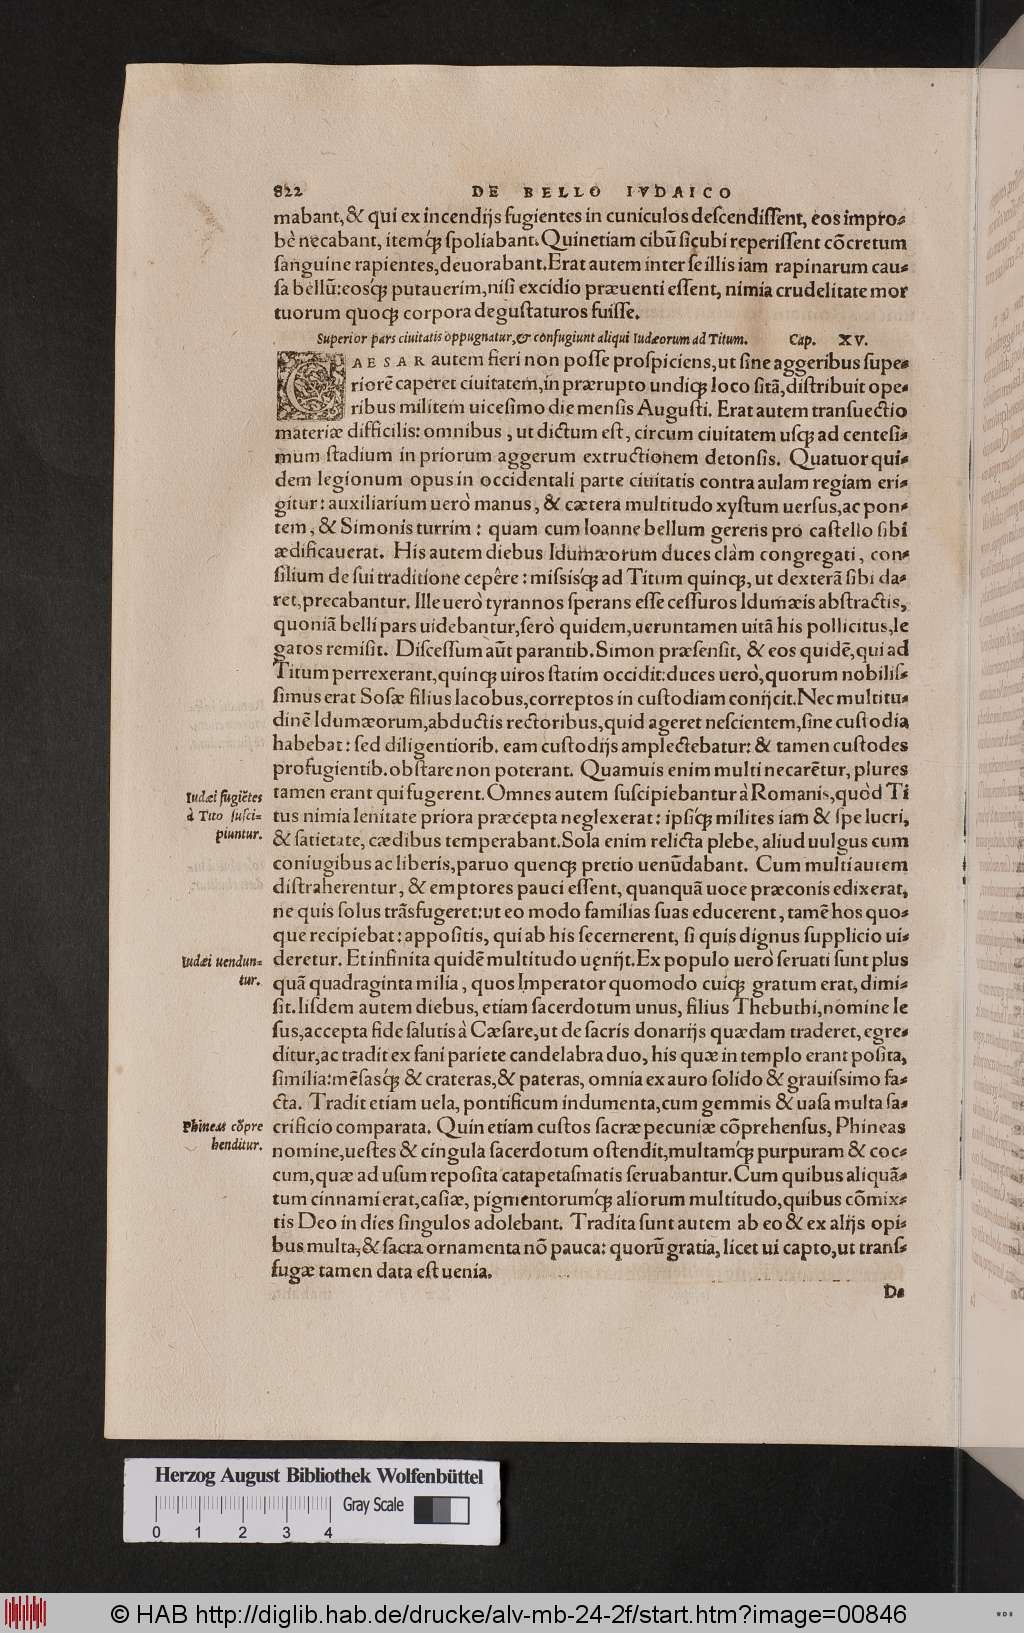 822 DE BELLO IVDAICO
mabant, & qui ex incendijs fugientes in cuniculos deſcendiſſent, eos impro-
bè necabant, itemq́ꝫ ſpoliabant. Quinetiam cibũ ſicubi reperiſſent cõcretum
ſanguine rapientes, deuorabant. Erat autem inter ſe illis iam rapinarum cau-
ſa bellũ: eosq́ꝫ putauerim, niſi excidio præuenti eſſent, nimia crudelitate mor
tuorum quoqꝫ corpora deguſtaturos fuiſſe.
Superior pars ciuitatis oppugnatur, & confugiunt aliqui Iudæorum ad Titum. Cap. XV.
CAESAR autem fieri non poſſe proſpiciens, ut ſine aggeribus ſupe-
riorẽ caperet ciuitatem, in prærupto undiqꝫ loco ſitã, diſtribuit ope-
ribus militem uiceſimo die menſis Auguſti. Erat autem tranſuectio
materiæ difficilis: omnibus, ut dictum eſt, circum ciuitatem uſqꝫ ad centeſi-
mum ſtadium in priorum aggerum extructionem detonſis. Quatuor qui-
dem legionum opus in occidentali parte ciuitatis contra aulam regiam eri-
gitur: auxiliarium uerò manus, & cætera multitudo xyſtum uerſus, ac pon-
tem, & Simonis turrim: quam cum Ioanne bellum gerens pro caſtello ſibi
ædificauerat. His autem diebus Idumæorum duces clàm congregati, con-
ſilium de ſui traditione cepêre: miſsisq́ꝫ ad Titum quinqꝫ, ut dexterã ſibi da-
ret, precabantur. Ille uerò tyrannos ſperans eſſe ceſſuros Idumæis abſtractis,
quoniã belli pars uidebantur, ſerò quidem, ueruntamen uitã his pollicitus, le
gatos remiſit. Diſceſſum aũt parantib. Simon præſenſit, & eos quidẽ, qui ad
Titum perrexerant, quinqꝫ uiros ſtatim occidit: duces uerò, quorum nobiliſ-
ſimus erat Soſæ filius Iacobus, correptos in cuſtodiam conijcit. Nec multitu-
dinẽ Idumæorum, abductis rectoribus, quid ageret neſcientem, ſine cuſtodia
habebat: ſed diligentiorib. eam cuſtodijs amplectebatur: & tamen cuſtodes
profugientib. obſtare non poterant. Quamuis enim multi necarẽtur, plures
Iudæi fugiẽtes
à Tito ſuſci-
piuntur.
tamen erant qui fugerent. Omnes autem ſuſcipiebantur à Romanis, quòd Ti
tus nimia lenitate priora præcepta neglexerat: ipſiq́ꝫ milites iam & ſpe lucri,
& ſatietate, cædibus temperabant. Sola enim relicta plebe, aliud uulgus cum
coniugibus ac liberis, paruo quenqꝫ pretio uenũdabant. Cum multi autem
diſtraherentur, & emptores pauci eſſent, quanquã uoce præconis edixerat,
ne quis ſolus trãsfugeret: ut eo modo familias ſuas educerent, tamẽ hos quo-
que recipiebat: appoſitis, qui ab his ſecernerent, ſi quis dignus ſupplicio ui-
Iudæi uendun-
tur.
deretur. Et infinita quidẽ multitudo uęnijt. Ex populo uerò ſeruati ſunt plus
quã quadraginta milia, quos Imperator quomodo cuiqꝫ gratum erat, dimi-
ſit. Iiſdem autem diebus, etiam ſacerdotum unus, filius Thebuthi, nomine Ie
ſus, accepta fide ſalutis à Cæſare, ut de ſacris donarijs quædam traderet, egre-
ditur, ac tradit ex fani pariete candelabra duo, his quæ in templo erant poſita,
ſimilia: mẽſasq́ꝫ & crateras, & pateras, omnia ex auro ſolido & grauiſsimo fa-
cta. Tradit etiam uela, pontificum indumenta, cum gemmis & uaſa multa ſa-
Phineas cõpre
henditur.
crificio comparata. Quin etiam cuſtos ſacræ pecuniæ cõprehenſus, Phineas
nomine, ueſtes & cingula ſacerdotum oſtendit, multamq́ꝫ purpuram & coc-
cum, quæ ad uſum repoſita catapetaſmatis ſeruabantur. Cum quibus aliquã-
tum cinnami erat, caſiæ, pigmentorumq́ꝫ aliorum multitudo, quibus cõmix-
tis Deo in dies ſingulos adolebant. Tradita ſunt autem ab eo & ex alijs opi-
bus multa, & ſacra ornamenta nõ pauca: quorũ gratia, licet ui capto, ut tranſ-
fugæ tamen data eſt uenia.
De
Herzog August Bibliothek Wolfenbüttel
Gray Scale
0 1 2 3 4
© HAB http://diglib.hab.de/drucke/alv-mb-24-2f/start.htm?image=00846